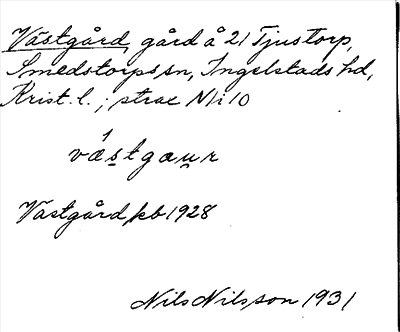 Västgård, gård å 21 Tjustorp,
Smedstorps sn, Ingelstads hd,
Krist. l.; strax N i 10
1
væstgaur
Västgård kb 1928
Nils Nilsson 1931